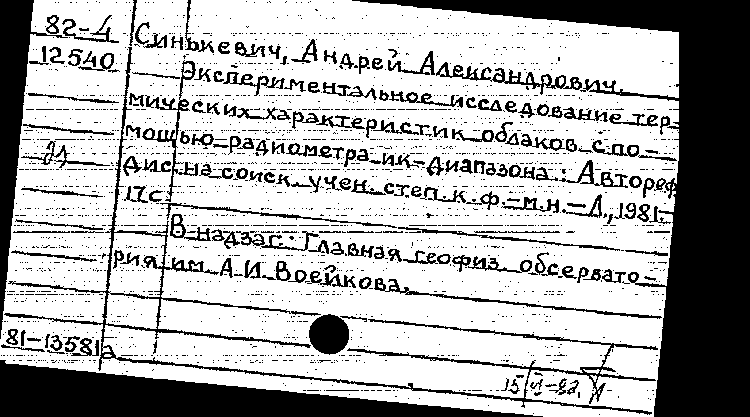 82-4
12540
Синькевич, Андрей Александрович.
Экспериментальное исследование тер-
мических характеристик облаков с по-
мощью радиометра ик-диапазона: Автореф
дис. на соиск. учен. степ. к.ф.-м.н.-Л., 1981.-
17с.
В надзаг.: Главная геофиз. обсервато-
рия им. А.И. Воейкова.
81-13581а